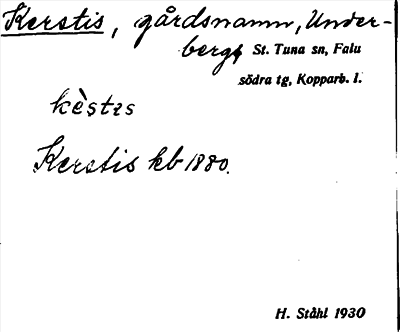 Kerstis, gårdsnamn, Under-
berg, St. Tuna sn, Falu
södra tg, Kopparb. l.
kèstɪs
Kerstis kb 1880.
H. Ståhl 1930